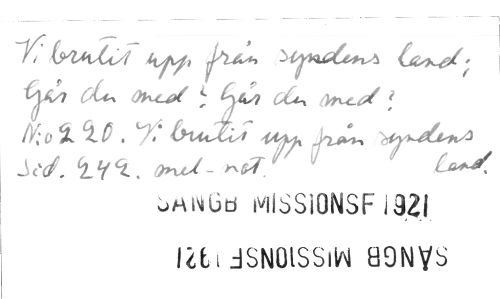 Vi brutit upp från syndens land;
Går du med? Går du med?
N:o 220. Vi brutit upp från syndens
Sid. 242. mel-not. land.
SÅNGB MISSIONSF 1921
SÅNGB MISSIONSF 1921